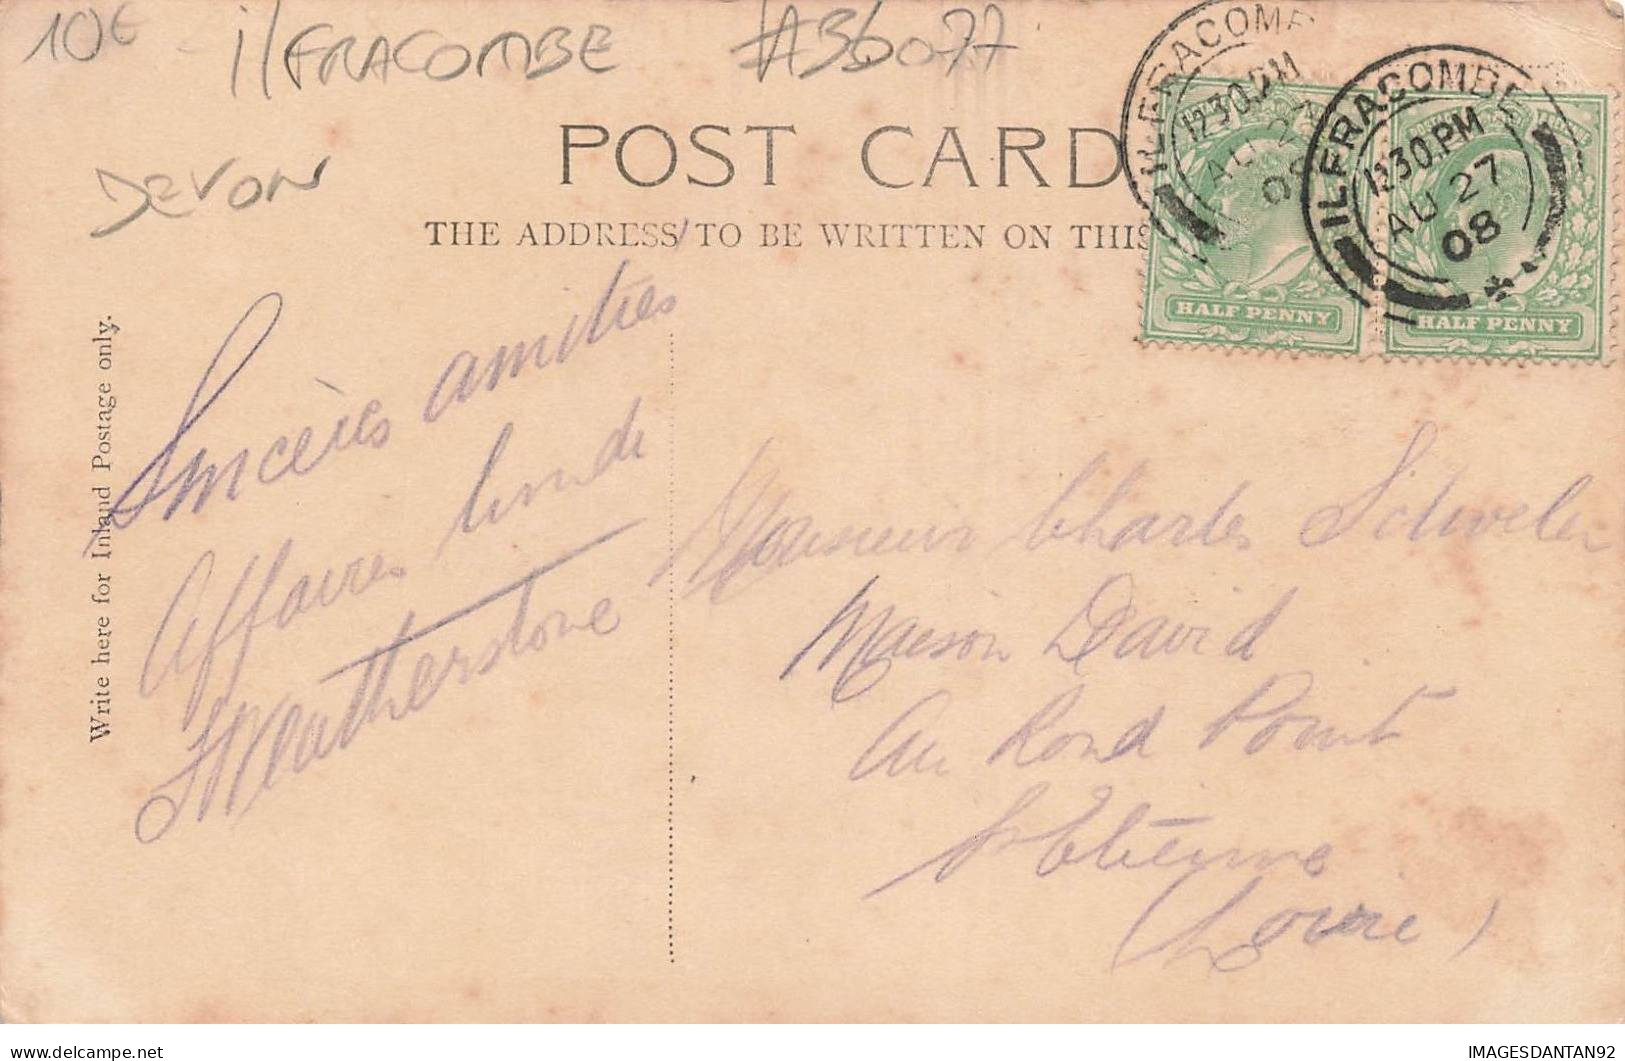 10€ ilFRACOMBE #36077
DEVON
POST CARD
THE ADDRESS TO BE WRITTEN ON THIS
ILFRACOMBE
12.30.PM
AU 27
08
ILFRACOMBE
12.30.PM
AU 27
08
HALF PENNY
HALF PENNY
Write here for Inland Postage only.
Sincères amitiés
Affaires
Weatherstone
Monsieur Charles
Maison David
Au Rond Point
St Etienne
(Loire)
IMAGESDANTAN92
delcampe.net